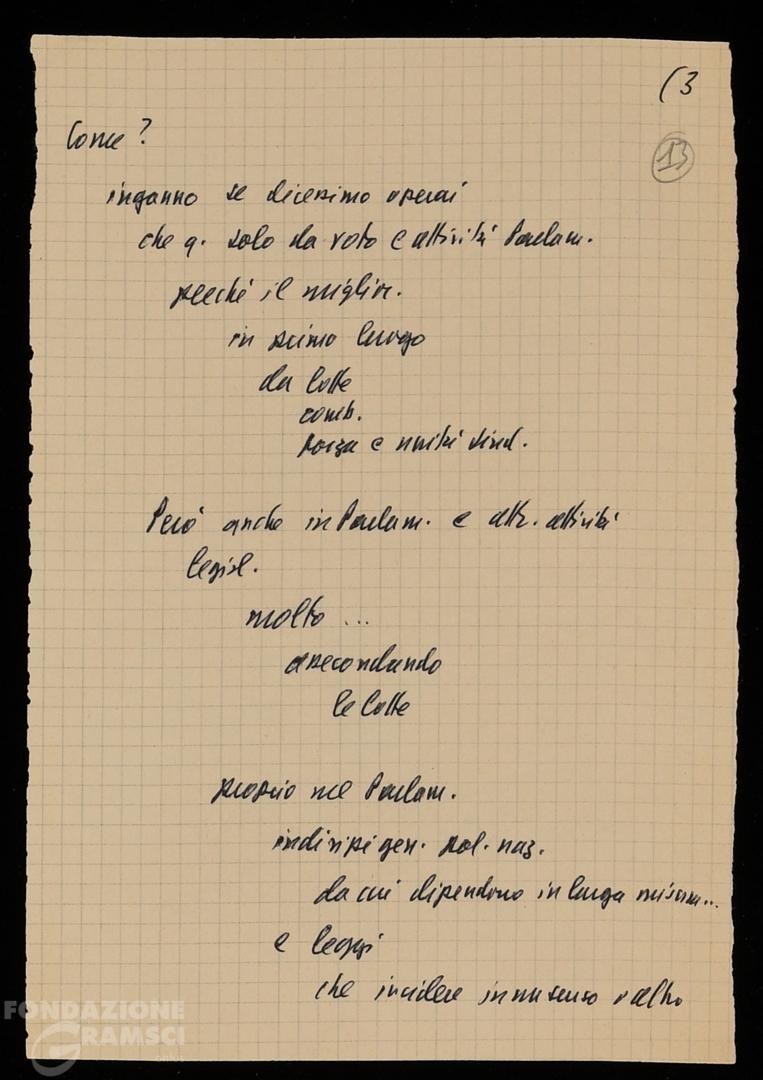 (3
13
Come?
inganno se dicessimo operai
che q. solo da voto e attività Parlam.
perché il miglior.
in primo luogo
da lotte
comb.
forza e unità sind.
Però anche in Parlam. e altr. attività
legisl.
molto ...
assecondando
le lotte
proprio nel Parlam.
indirizzi gen. pol. naz.
da cui dipendono in larga misura...
e leggi
che incidere in un senso o altro
FONDAZIONE
GRAMSCI
onlus